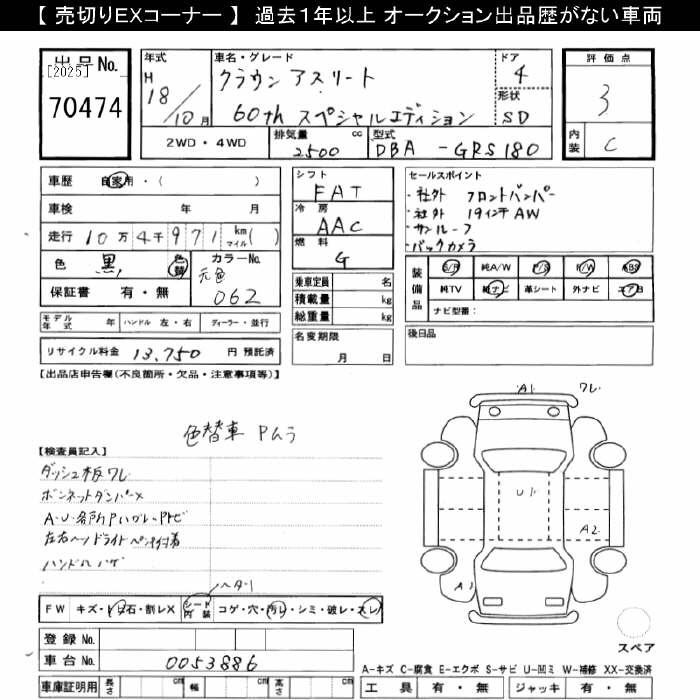 【 売切りEXコーナー 】 過去1年以上 オークション出品歴がない車両
出品No.
[2025]
70474
年式
H
18/10月
車名・グレード
クラウン アスリート
60th スペシャルエディション
ドア
4
形状
SD
評価点
3
内装
C
2WD・4WD
排気量 cc
2500
型式
DBA -GRS180
車歴 自家用・( )
車検 年 月
走行 10万4千971 km マイル( )
色 黒 色替
カラーNo.
元色
062
保証書 有・無
シフト
FAT
冷房
AAC
燃料
G
乗車定員 名
積載量 kg
総重量 kg
セールスポイント
・社外 フロントバンパー
・社外 19インチAW
・サンルーフ
・バックカメラ
装備品
S/R 純A/W P/S P/W ABS
純TV 純ナビ 革シート 外ナビ エアB
ナビ型番:
モデル年式 年 ハンドル 左・右 ディーラー・並行
リサイクル料金 13,750 円 預託済
名変期限
月 日
後日品
【出品店申告欄(不良箇所・欠品・注意事項等)】
色替車 Pムラ
【検査員記入】
ダッシュ板ワレ
ボンネットダンパー×
A・U・各所Pハガレ・Pトビ
左右ヘッドライト ペン付着
ハンドルハゲ
A1 ワレ
U1
A2
A1
ヘタリ
FW キズ・ 石・割レX シート内装 コゲ・穴・汚レ・シミ・破レ・スレ
登録No.
車台No. 0053886
スペア
A-キズ C-腐食 E-エクボ S-サビ U-凹ミ W-補修 XX-交換済
車庫証明用 長さ cm 幅 cm 高さ cm
工具 有・無 ジャッキ 有・無